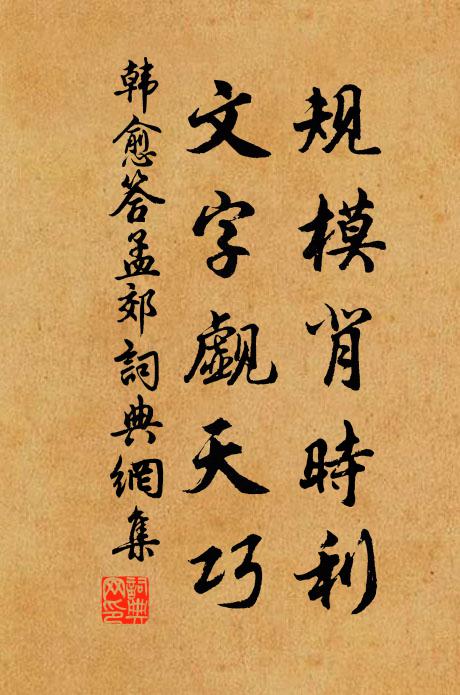 規模背時利
文字覷天巧
韩愈答孟郊詞典網集
詞典
网印